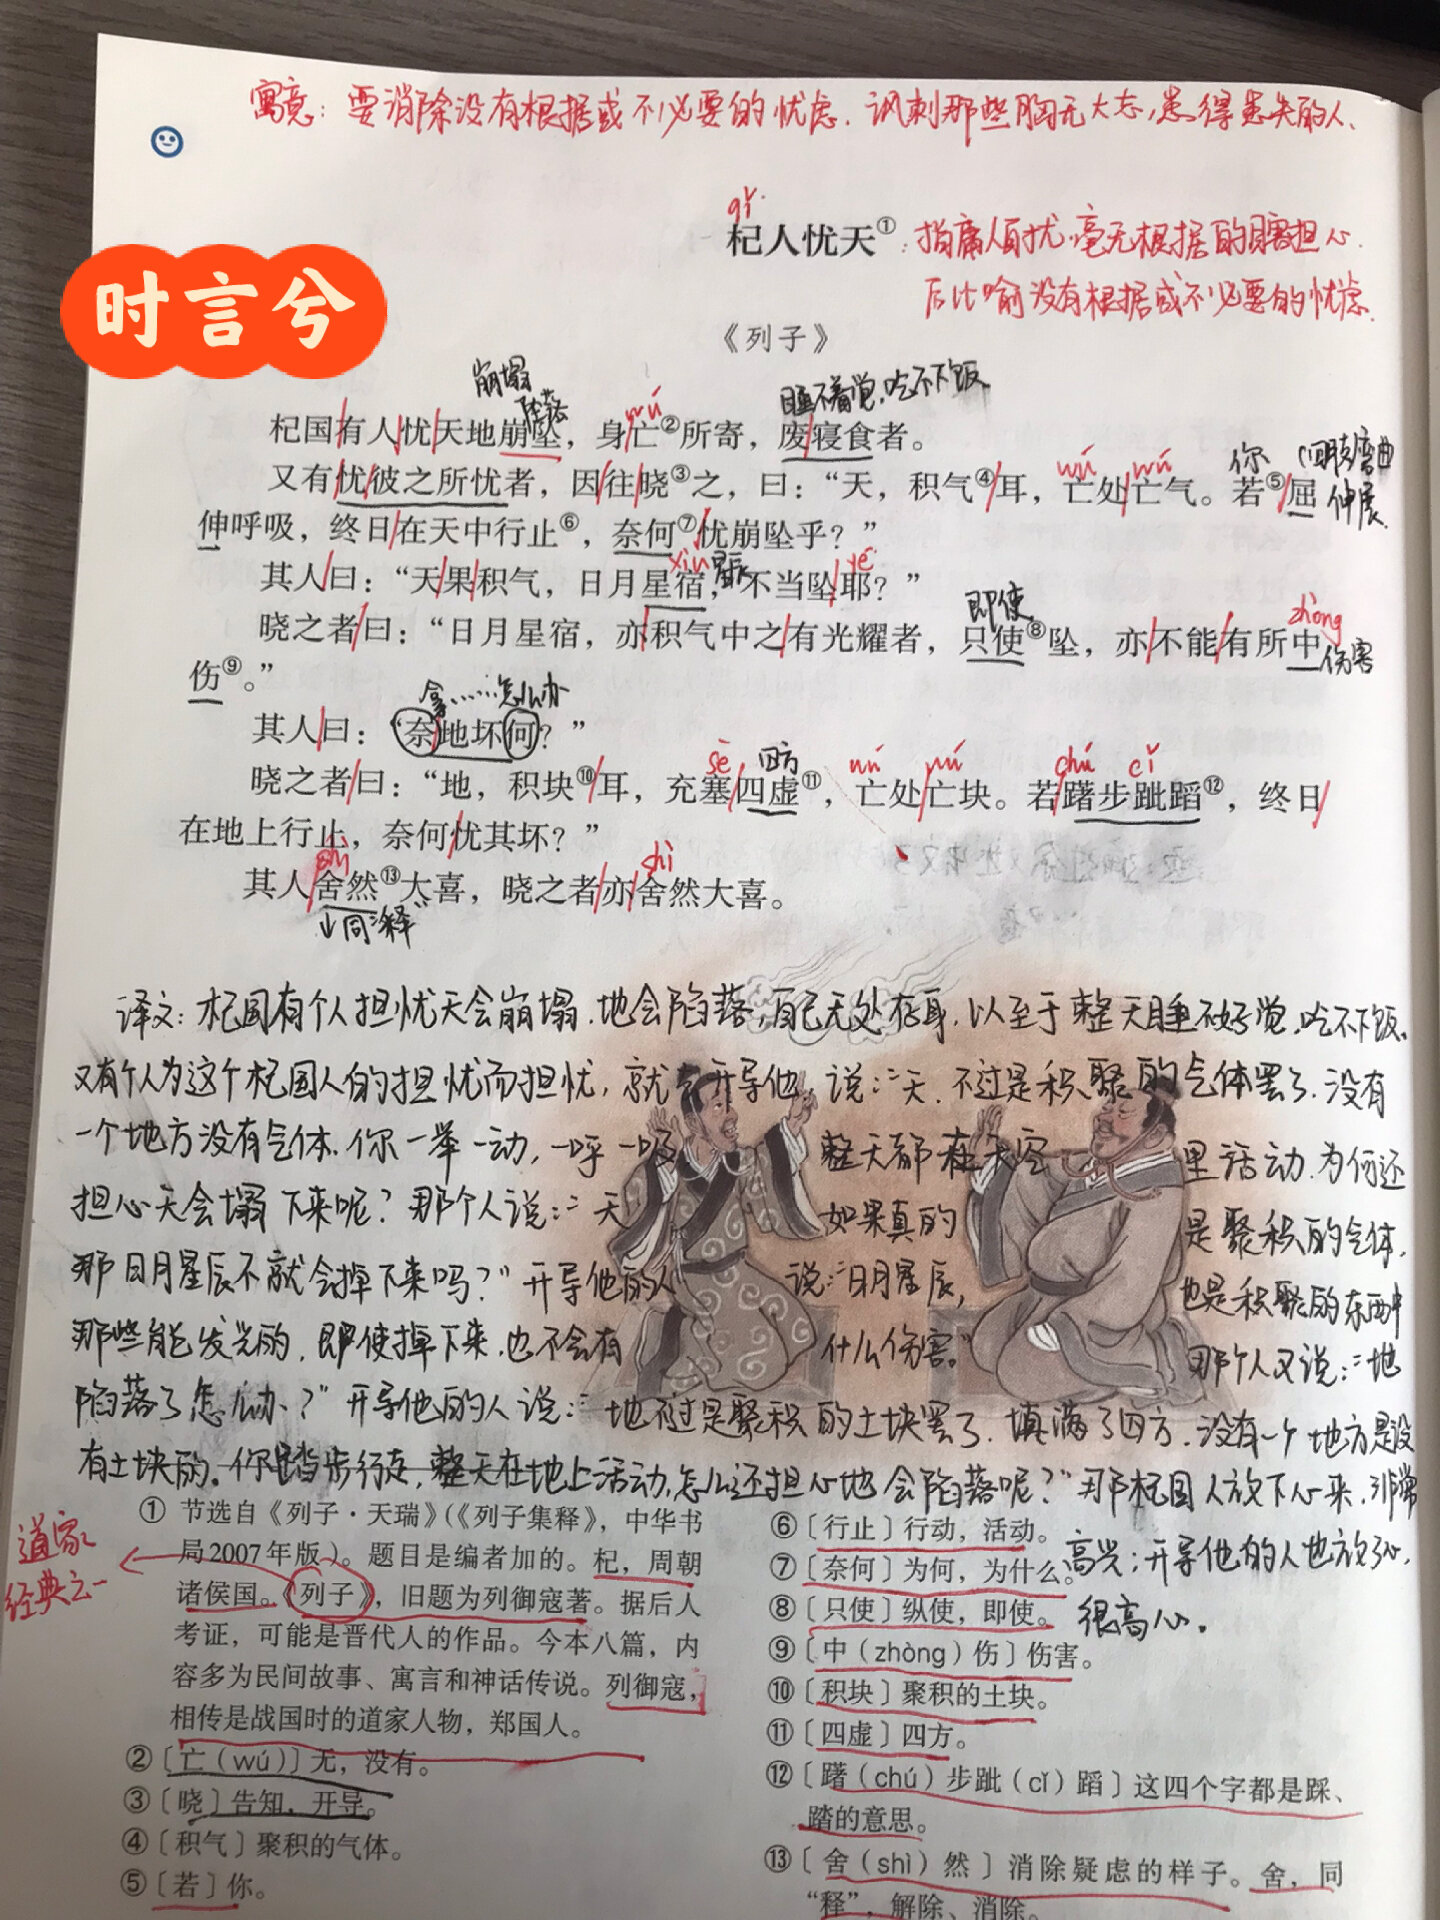 寓意：要消除没有根据或不必要的忧虑．讽刺那些胸无大志，患得患失的人、
qǐ
杞人忧天①：指庸人自扰，毫无根据的瞎担心．
后比喻没有根据或不必要的忧虑．
时言兮
《列子》
崩塌 陆落 wú 睡不着觉，吃不下饭
杞国有人忧天地崩坠，身亡②所寄，废寝食者。
wú wú 你
又有忧彼之所忧者，因往晓③之，曰：“天，积气④耳，亡处亡气。若⑤屈
伸展
伸呼吸，终日在天中行止⑥，奈何⑦忧崩坠乎？”
xiù 星辰 yé
其人曰：“天果积气，日月星宿，不当坠耶？”
即使 zhòng
晓之者曰：“日月星宿，亦积气中之有光耀者，只使⑧坠，亦不能有所中
伤害
伤⑨。”
拿……怎么办
其人曰：“奈地坏何？”
sè 四方 wú wú chú cǐ
晓之者曰：“地，积块⑩耳，充塞四虚⑪，亡处亡块。若躇步跐蹈⑫，终日
在地上行止，奈何忧其坏？”
shì shì
其人舍然⑬大喜，晓之者亦舍然大喜。
↓同“释”
译文：杞国有个人担忧天会崩塌．地会陷落，自己无处存身．以至于整天睡不好觉，吃不下饭．
又有个人为这个杞国人的担忧而担忧，就去开导他，说：“天．不过是积聚的气体罢了．没有
一个地方没有气体．你一举一动，一呼一吸 整天都在天空里活动．为何还
担心天会塌下来呢？那个人说：“天如果真的是聚积的气体．
那日月星辰不就会掉下来吗？”开导他的人说：“日月星辰，也是积聚的东西中
那些能发光的．即使掉下来．也不会有什么伤害。”那个人又说：“地
陷落了怎么办？”开导他的人说：“地不过是聚积的土块罢了．填满了四方．没有一个地方是没
有土块的。你踏步行走，整天在地上活动，怎么还担心地会陷落呢？”那杞国人放下心来．非常
高兴；开导他的人也放了心，
很高心。
道家
经典之一
① 节选自《列子·天瑞》（《列子集释》，中华书
局2007年版）。题目是编者加的。杞，周朝
诸侯国。《列子》，旧题为列御寇著。据后人
考证，可能是晋代人的作品。今本八篇，内
容多为民间故事、寓言和神话传说。列御寇，
相传是战国时的道家人物，郑国人。
②〔亡（wú）〕无，没有。
③〔晓〕告知，开导。
④〔积气〕聚积的气体。
⑤〔若〕你。
⑥〔行止〕行动，活动。
⑦〔奈何〕为何，为什么。
⑧〔只使〕纵使，即使。
⑨〔中（zhòng）伤〕伤害。
⑩〔积块〕聚积的土块。
⑪〔四虚〕四方。
⑫〔躇（chú）步跐（cǐ）蹈〕这四个字都是踩、
踏的意思。
⑬〔舍（shì）然〕消除疑虑的样子。舍，同
“释”，解除、消除。